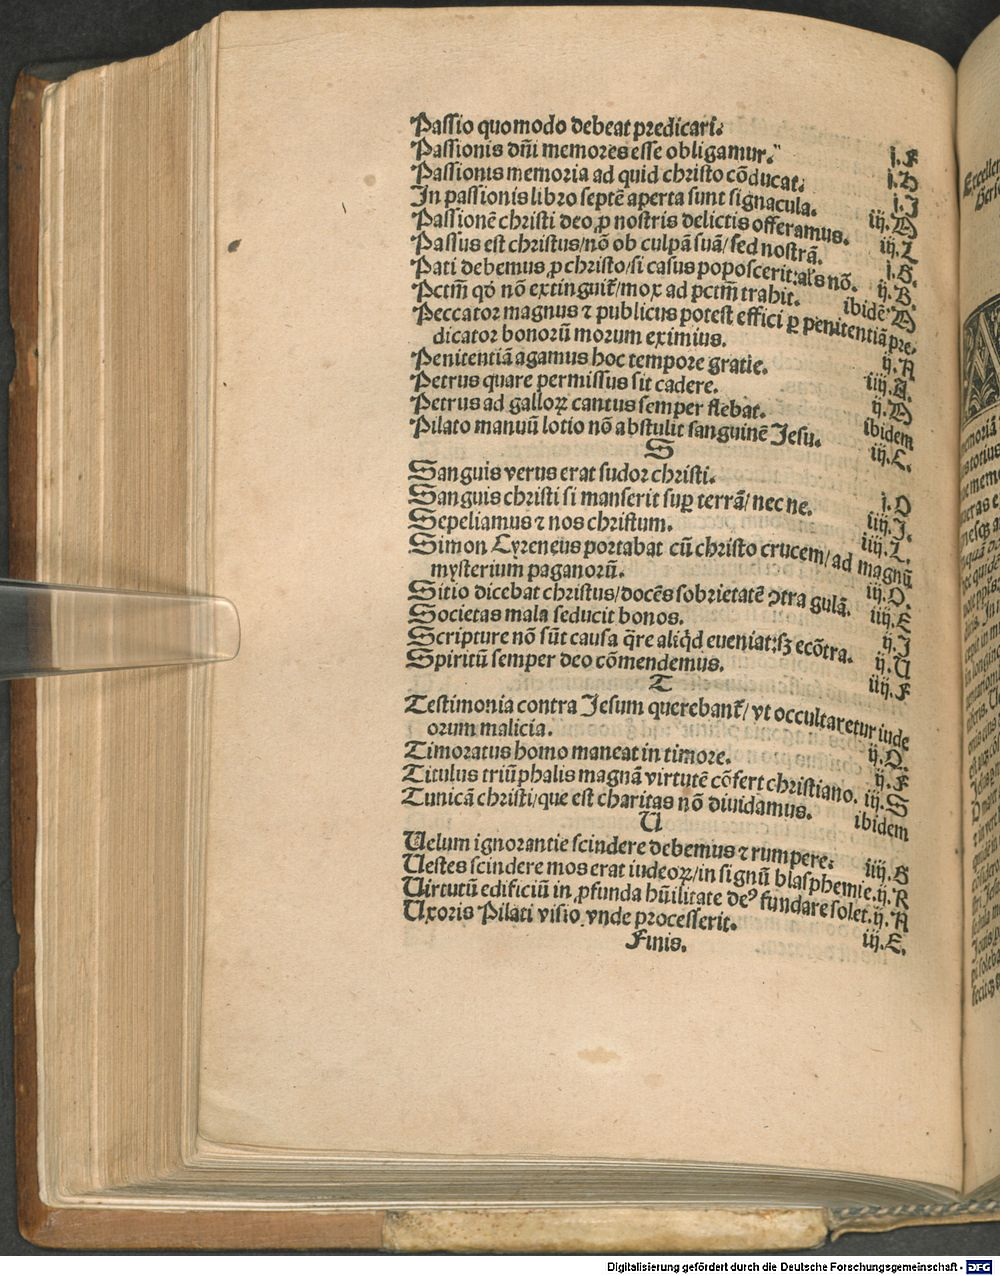 Passio quomodo debeat predicari. i.F
Passionis dñi memores esse obligamur. i.H
Passionis memoria ad quid christo cõducat. i.I
In passionis libro septẽ aperta sunt signacula. iij.D
Passionẽ christi deo ꝓ nostris delictis offeramus. iij.L
Passus est christus/nõ ob culpã suã/sed nostrã. i.B.
Pati debemus ꝓ christo/si casus poposcerit:als nõ. ij.B.
Pctm̃ qđ nõ extinguit᷑/mox ad pctm̃ trahit. ibidẽ D
Peccator magnus ⁊ publicus potest effici ꝑ penitentiã pre-
dicator bonorũ morum eximius. ij.A
Penitentiã agamus hoc tempore gratie. iiij.A.
Petrus quare permissus sit cadere. ij.D
Petrus ad galloꝝ cantus semper flebat. ibidem
Pilato manuũ lotio nõ abstulit sanguinẽ Jesu. iij.C.
S
Sanguis verus erat sudor christi. i.O
Sanguis christi si manserit suꝑ terrã/nec ne. iiij.J.
Sepeliamus ⁊ nos christum. iiij.L.
Simon Cyreneus portabat cũ christo crucem/ad magnũ
mysterium paganorũ. iij.O.
Sitio dicebat christus/docẽs sobrietatẽ ꝯtra gulã. iiij.E
Societas mala seducit bonos. ij.J
Scripture nõ sũt causa q̃re aliq̇d eueniat:sꝫ ecõtra. ij.U
Spiritũ semper deo cõmendemus. iiij.F
T
Testimonia contra Jesum querebant᷑/vt occultaretur iude
orum malicia. ij.O.
Timoratus homo maneat in timore. ij.F
Titulus triũphalis magnã virtutẽ cõfert christiano. iij.S
Tunicã christi/que est charitas nõ diuidamus. ibidem
U
Uelum ignorantie scindere debemus ⁊ rumpere. iiij.B
Uestes scindere mos erat iudeoꝝ/in signũ blasphemie. ij.R
Uirtutũ edificiũ in ꝓfunda hũilitate deꝰ fundare solet. ij.A
Uxoris Pilati visio vnde processerit. iij.E.
Finis.
Digitalisierung gefördert durch die Deutsche Forschungsgemeinschaft - DFG